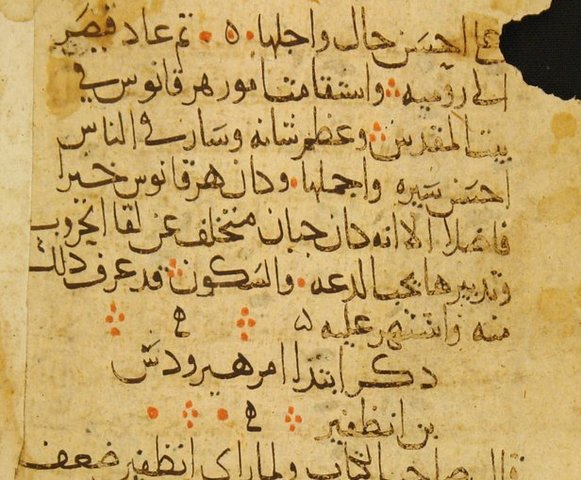 على احسن حال واجلها ۵ ثم عاد قيصر
الى روميه واستقامت امور هرقانوس في
بيت المقدس وعظم شانه وسار في الناس
احسن سيره واجملها وكان هرقانوس خيرا
فاضلا الا انه كان جبان متخلف عن لقا الحروب
وتدبيرها يحب الدعه والسكون قد عرف ذلك
منه واشتهر عليه ۵ ه
ذكر ابتدا امر هيرودس
بن انطفير ه
قال صاحب الكتاب ولما راى انطفير ضعف